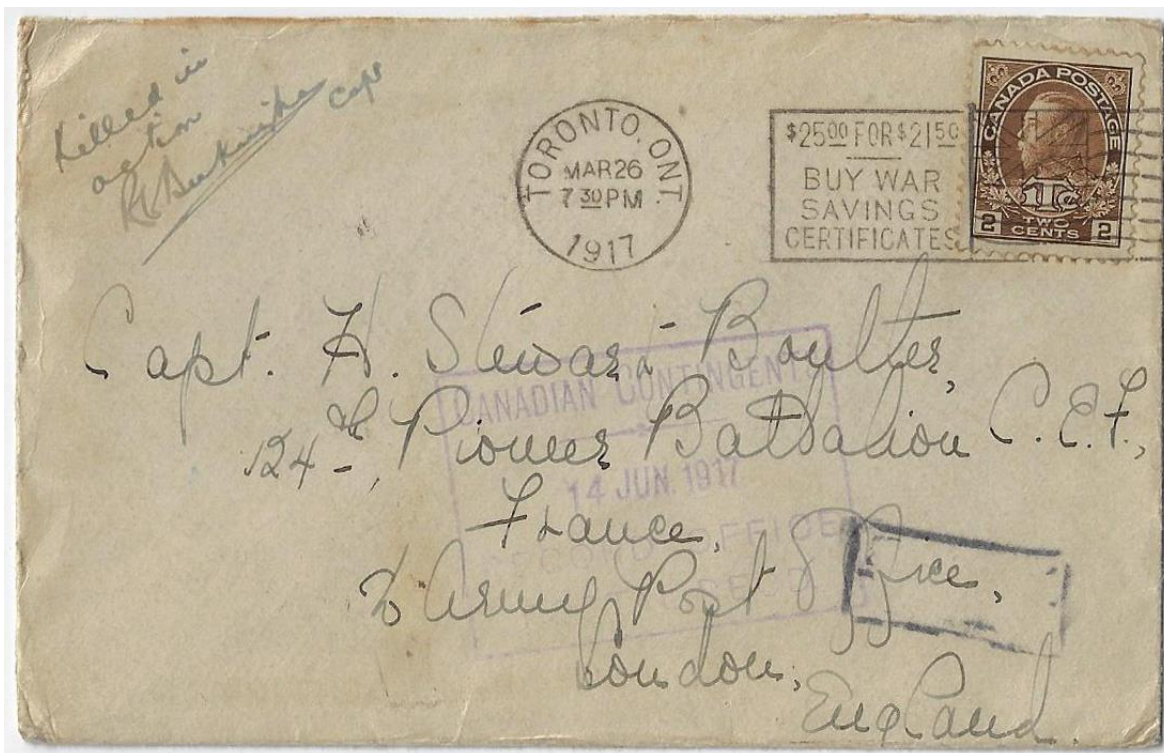 Killed in
action
Capt
TORONTO, ONT.
MAR 26
7 30 PM
1917
$25.00 FOR $21.50
BUY WAR
SAVINGS
CERTIFICATES
CANADA POSTAGE
1Tc
2 TWO CENTS 2
Capt. H. Stewart Boulter,
124th, Pioneer Battalion C.E.F.,
France,
℅ Army Post Office,
London,
England.
CANADIAN CONTINGENTS
14 JUN. 1917
RECORD OFFICE